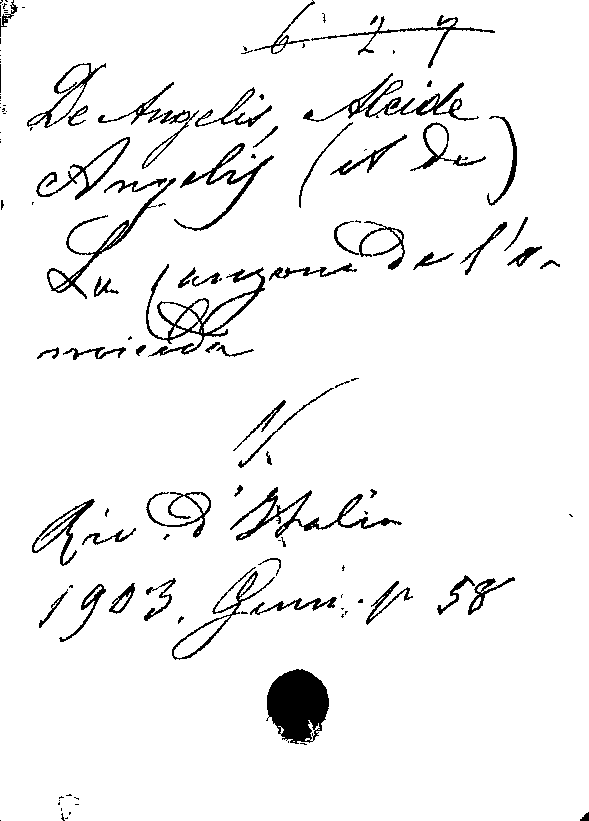 6. 2. 7
De Angelis, Alcide
Angelis (A. de)
La canzone de l'o-
micida
V.
Riv. d'Italia
1903. Giun. p 58